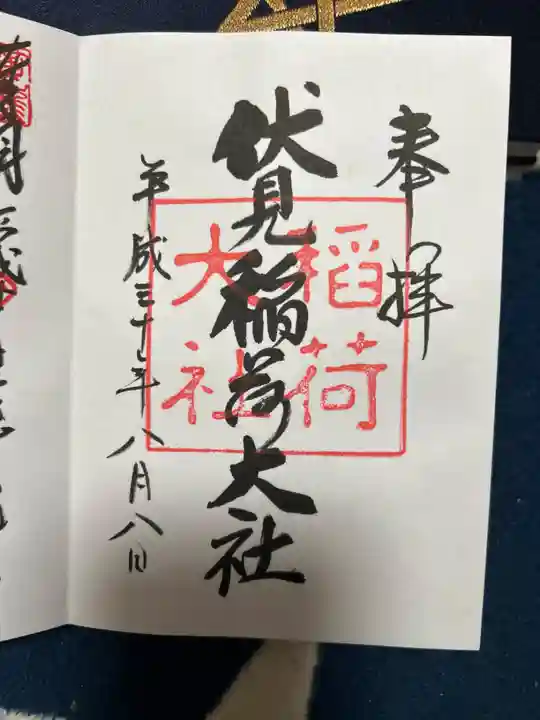 奉拝
伏見稲荷大社
平成三十年八月八日
稲荷
大社